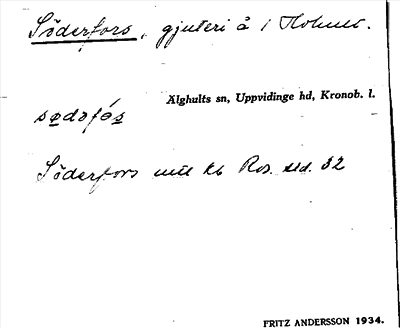 Söderfors, gjuteri å 1 Holmet.
Älghults sn, Uppvidinge hd, Kronob. l.
sødəfós
Söderfors utt kb Ros. sid. 32
FRITZ ANDERSSON 1934.